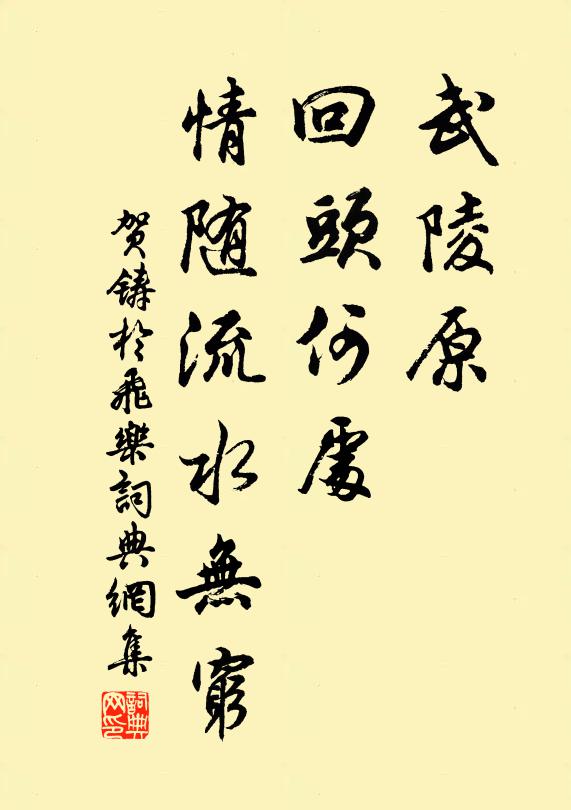 武陵原
回頭何處
情随流水無窮
贺鑄於飛樂詞典網集
詞典网印